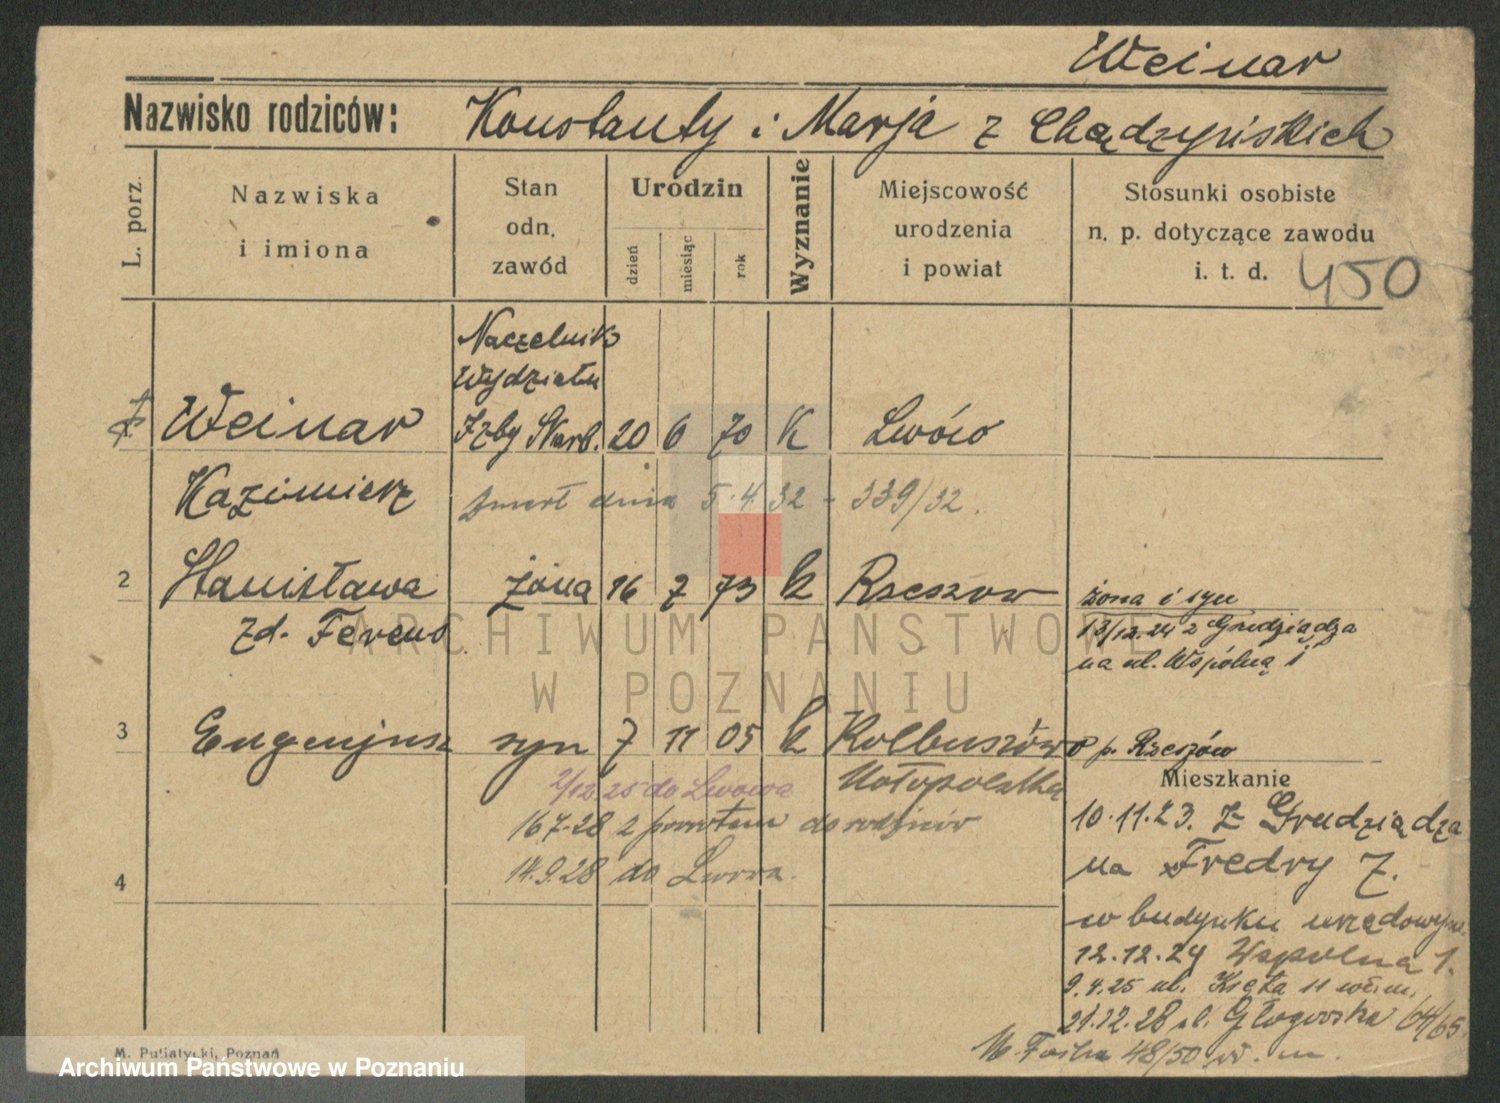 Weinar
Nazwisko rodziców: Konstanty i Marja z Chądzyńskich
L. porz.
Nazwiska
i imiona
Stan
odn.
zawód
Urodzin
dzień
miesiąc
rok
Wyznanie
Miejscowość
urodzenia
i powiat
Stosunki osobiste
n. p. dotyczące zawodu
i. t. d. 450
Naczelnik
Wydziału
Weinar Izby Skarb. 20 6 70 K Lwów
Kazimierz zmarł dnia 5.4.32 - 339/32.
2 Stanisława żona 16 7 73 k Rzeszow żona i syn
zd. Ferens 13/12.24 z Grudziądza
na ul. Wspólną 1
ARCHIWUM PAŃSTWOWE
W POZNANIU
3 Eugenjusz syn 7 11 05 k Kolbuszowo p. Rzeszów
2/12 25 do Lwowa Małopolska
Mieszkanie
16 7.28 z powrotem do rodziców
10.11.23. z Grudziądza
14.9.28 do Lwowa.
na Fredry 7.
4
w budynku urzędowym
12.12.24 Wspolna 1.
9.4.25 ul. Kręta 11
21.12.28 ul. Głogowska 64/65.
M. Focha 48/50
M. Putiatycki, Poznań
Archiwum Państwowe w Poznaniu